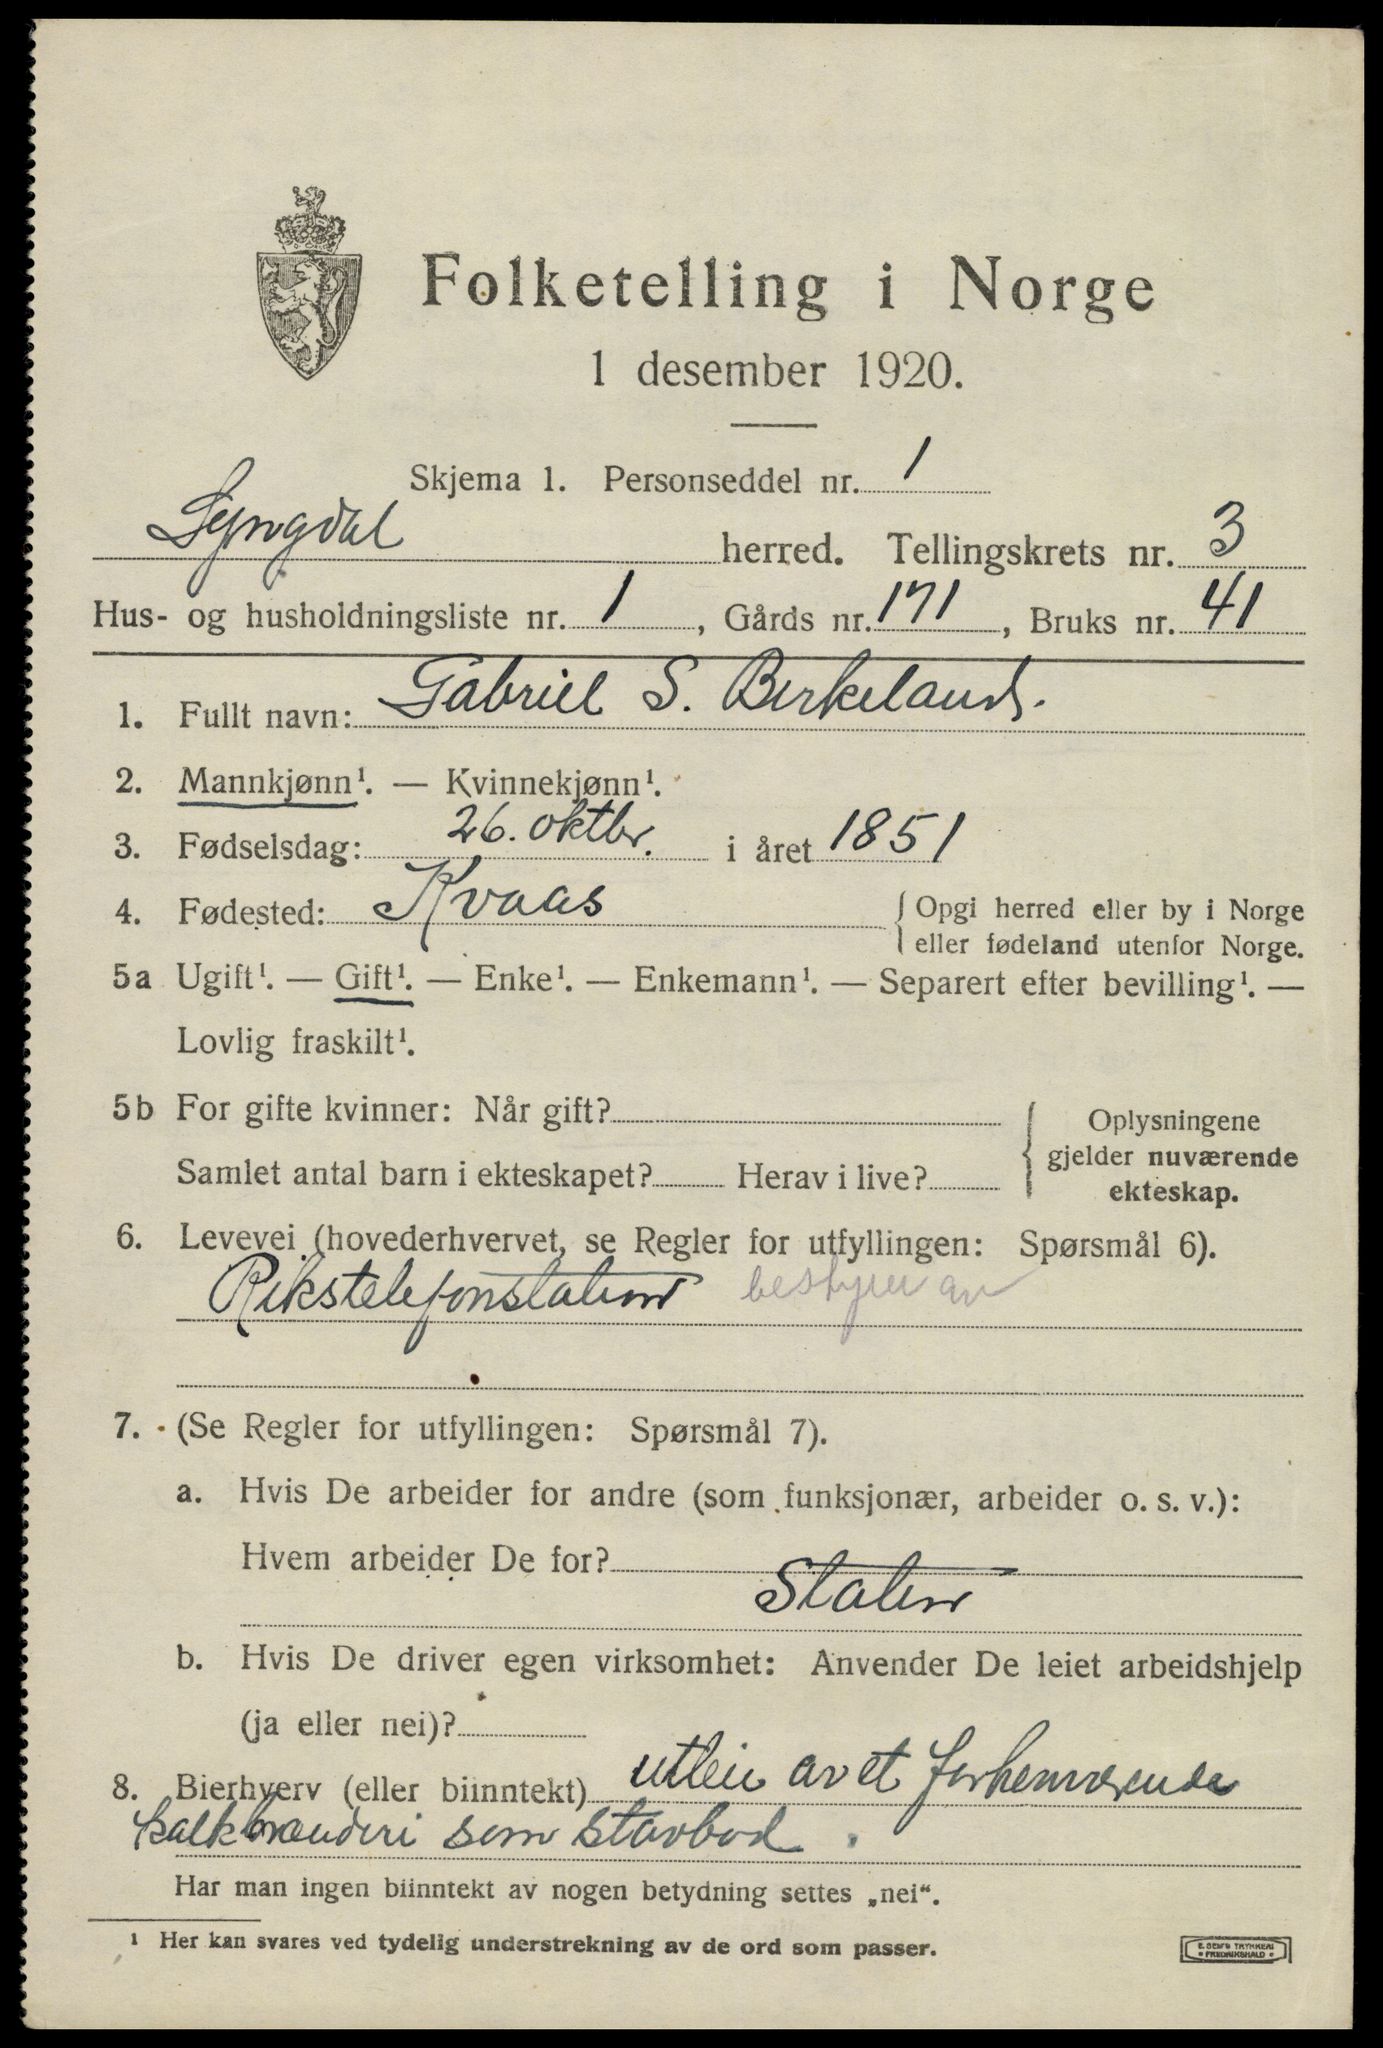 Folketelling i Norge
1 desember 1920.
Skjema 1. Personseddel nr. 1
Lyngdal herred. Tellingskrets nr. 3
Hus- og husholdningsliste nr. 1, Gårds nr. 171, Bruks nr. 41
1. Fullt navn: Gabriel S. Birkeland.
2. Mannkjønn¹. — Kvinnekjønn¹.
3. Fødselsdag: 26. oktbr. i året 1851
4. Fødested: Kvaas { Opgi herred eller by i Norge
eller fødeland utenfor Norge.
5a Ugift¹. — Gift¹. — Enke¹. — Enkemann¹. — Separert efter bevilling¹. —
Lovlig fraskilt¹.
5b For gifte kvinner: Når gift? { Oplysningene
gjelder nuværende
Samlet antal barn i ekteskapet? Herav i live?
ekteskap.
6. Levevei (hovederhvervet, se Regler for utfyllingen: Spørsmål 6).
Rikstelefonstation bestyrer av
7. (Se Regler for utfyllingen: Spørsmål 7).
a. Hvis De arbeider for andre (som funksjonær, arbeider o. s. v.):
Hvem arbeider De for?
Staten
b. Hvis De driver egen virksomhet: Anvender De leiet arbeidshjelp
(ja eller nei)?
8. Bierhverv (eller biinntekt) utleie av et forhenværende
kalkbrænderi som stavbod.
Har man ingen biinntekt av nogen betydning settes „nei“.
¹ Her kan svares ved tydelig understrekning av de ord som passer.
E. SEMS TRYKKERI
• FREDRIKSHALD •